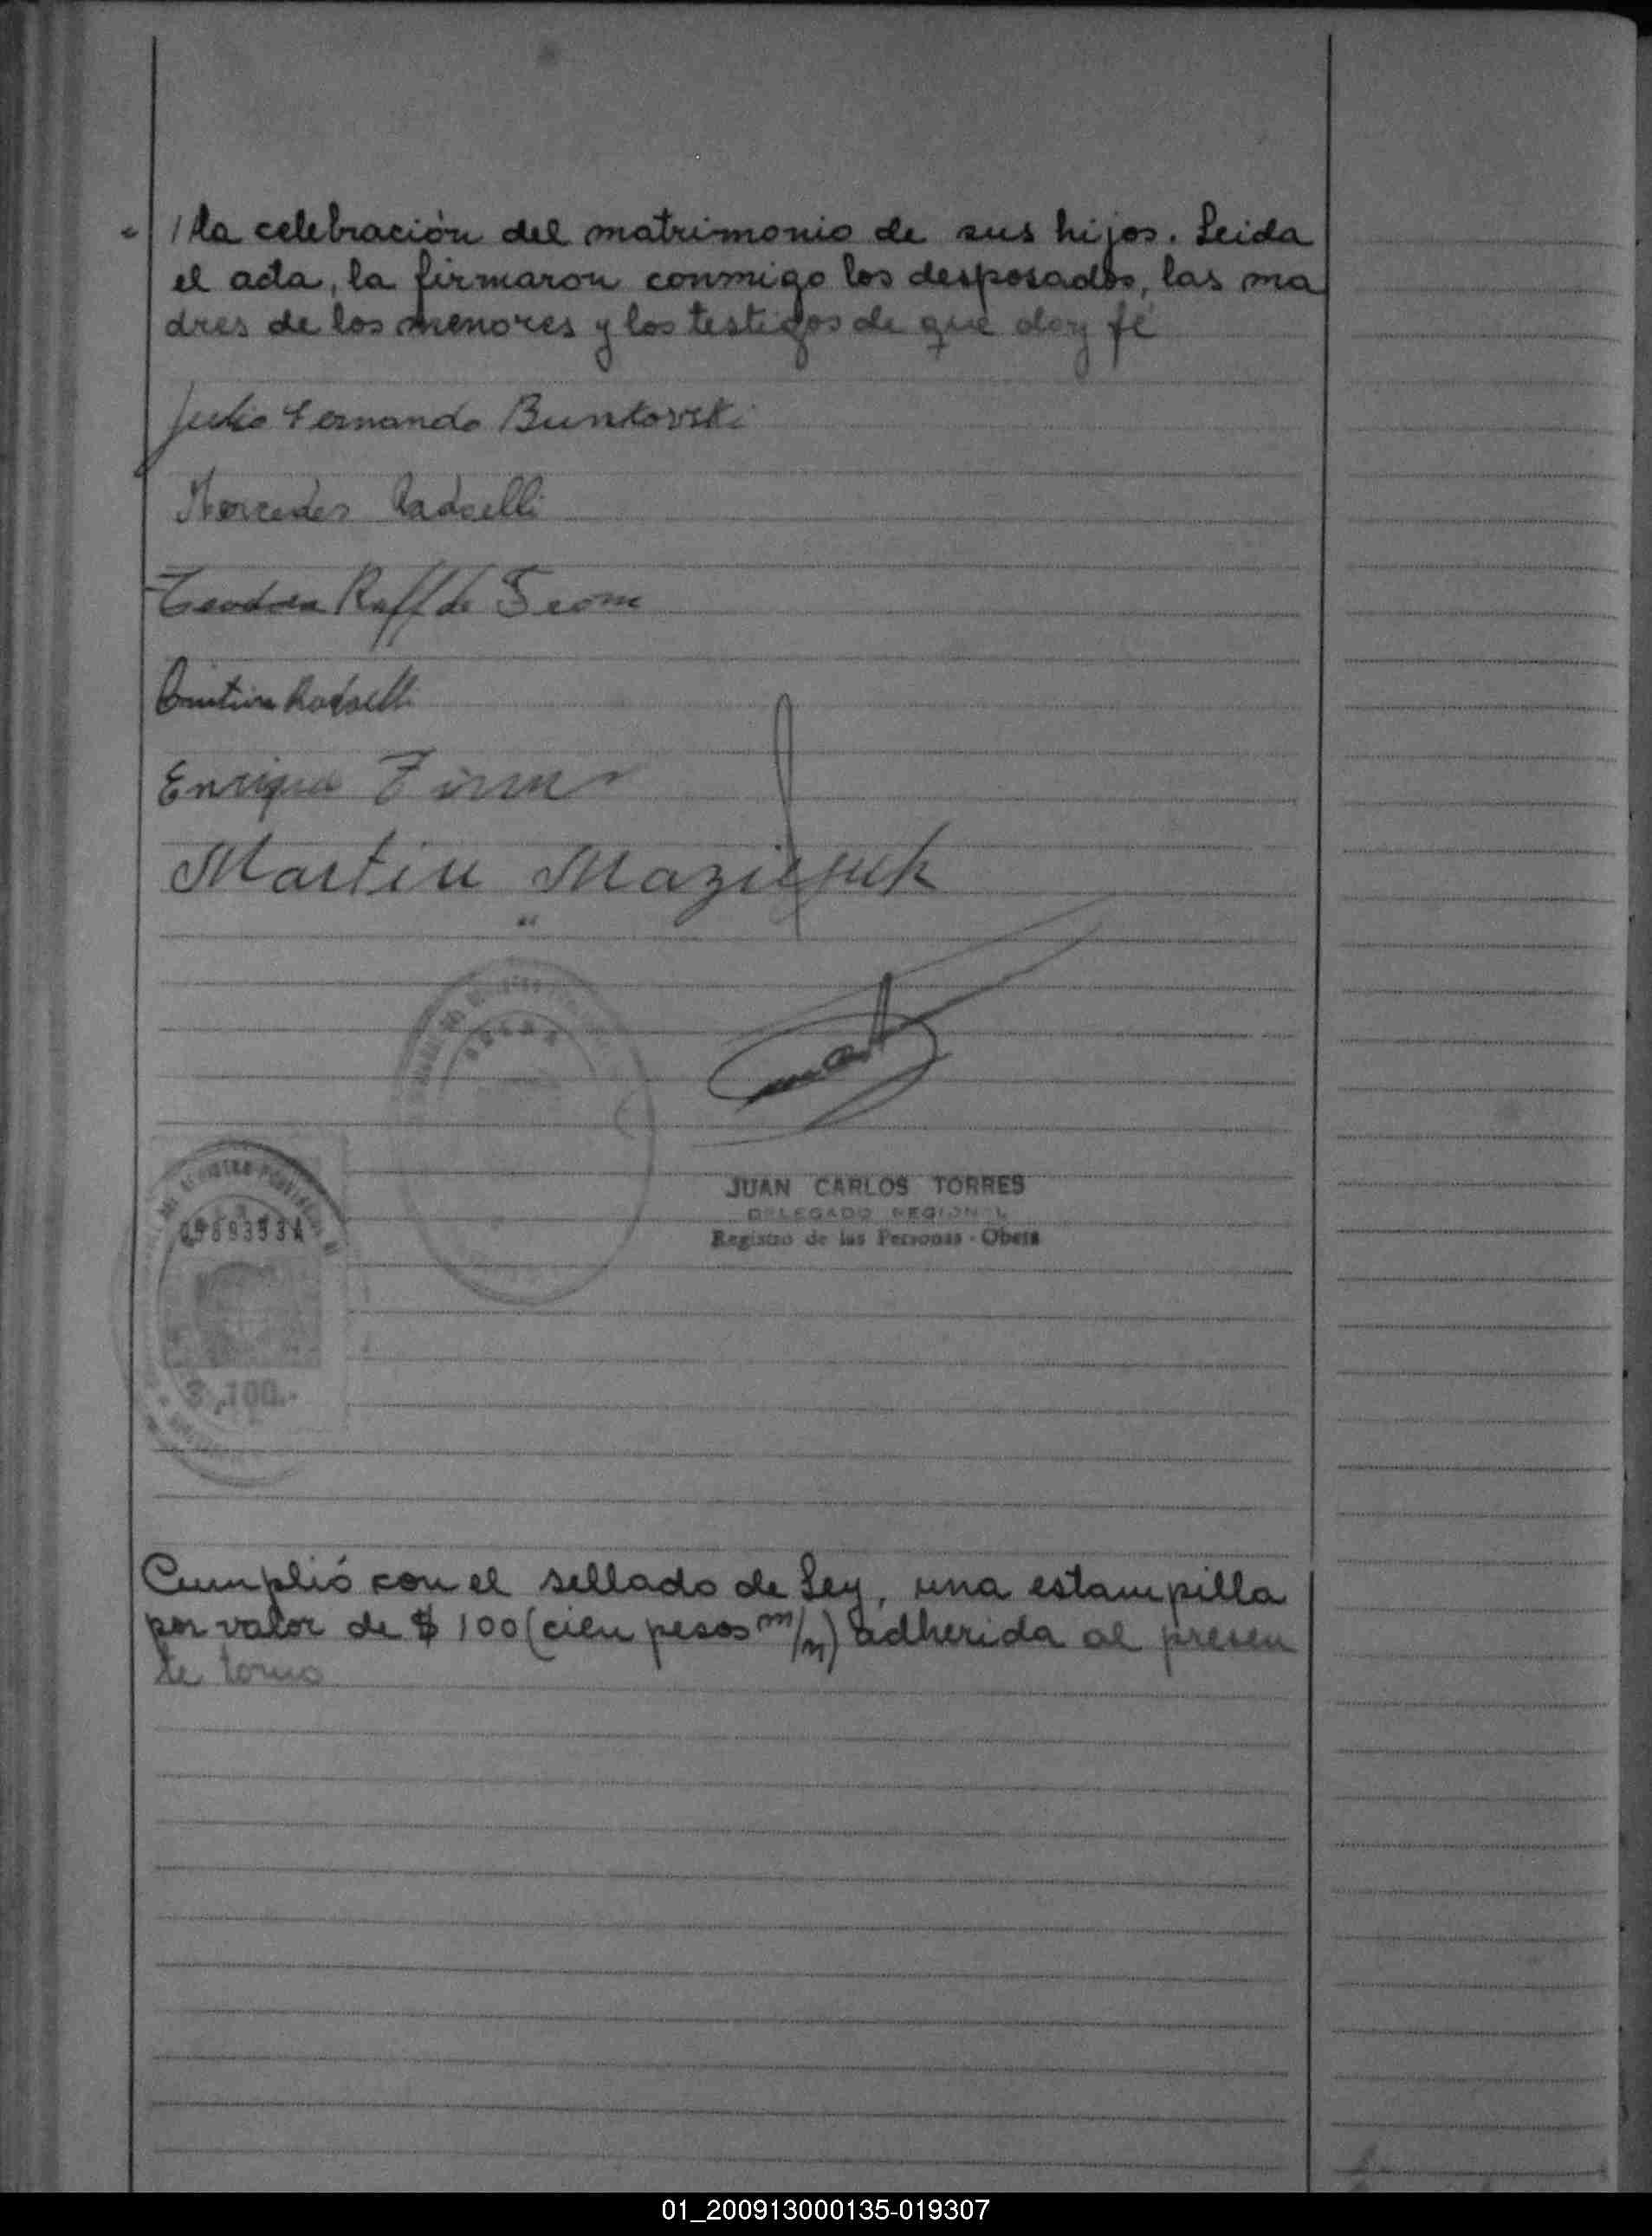 / la celebración del matrimonio de sus hijos. Leida
el acta, la firmaron conmigo los desposados, las ma
dres de los menores y los testigos de que doy fé
Julio Fernando Buntovski
Mercedes Radaelli
Teodora Raff de
Radaelli
Enrique
Martin
JUAN CARLOS TORRES
DELEGADO REGIONAL
Registro de las Personas - Oberá
$ 100.-
Cumplió con el sellado de Ley, una estampilla
por valor de $ 100 (cien pesos m/n) adherida al presen
te tomo
01_200913000135-019307